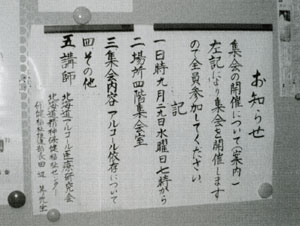 お知らせ
集会の開催について(案内)
左記により集会を開催します
ので全員参加してください。
記
一日時九月二九日水曜日七時から
二場所四階集会室
三集会内容アルコール依存について
四その他
五講師
北海道アルコール医療研究会
北海道精神保健福祉センター
行健福祉援助部長田辺等先生